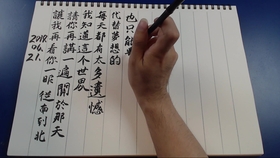 2018.
04.
21.
讓我再看你一眼 從南到北
請你再講一遍 關於那天
我知道這個世界
每天都有太多遺憾
代替夢想的
也只能